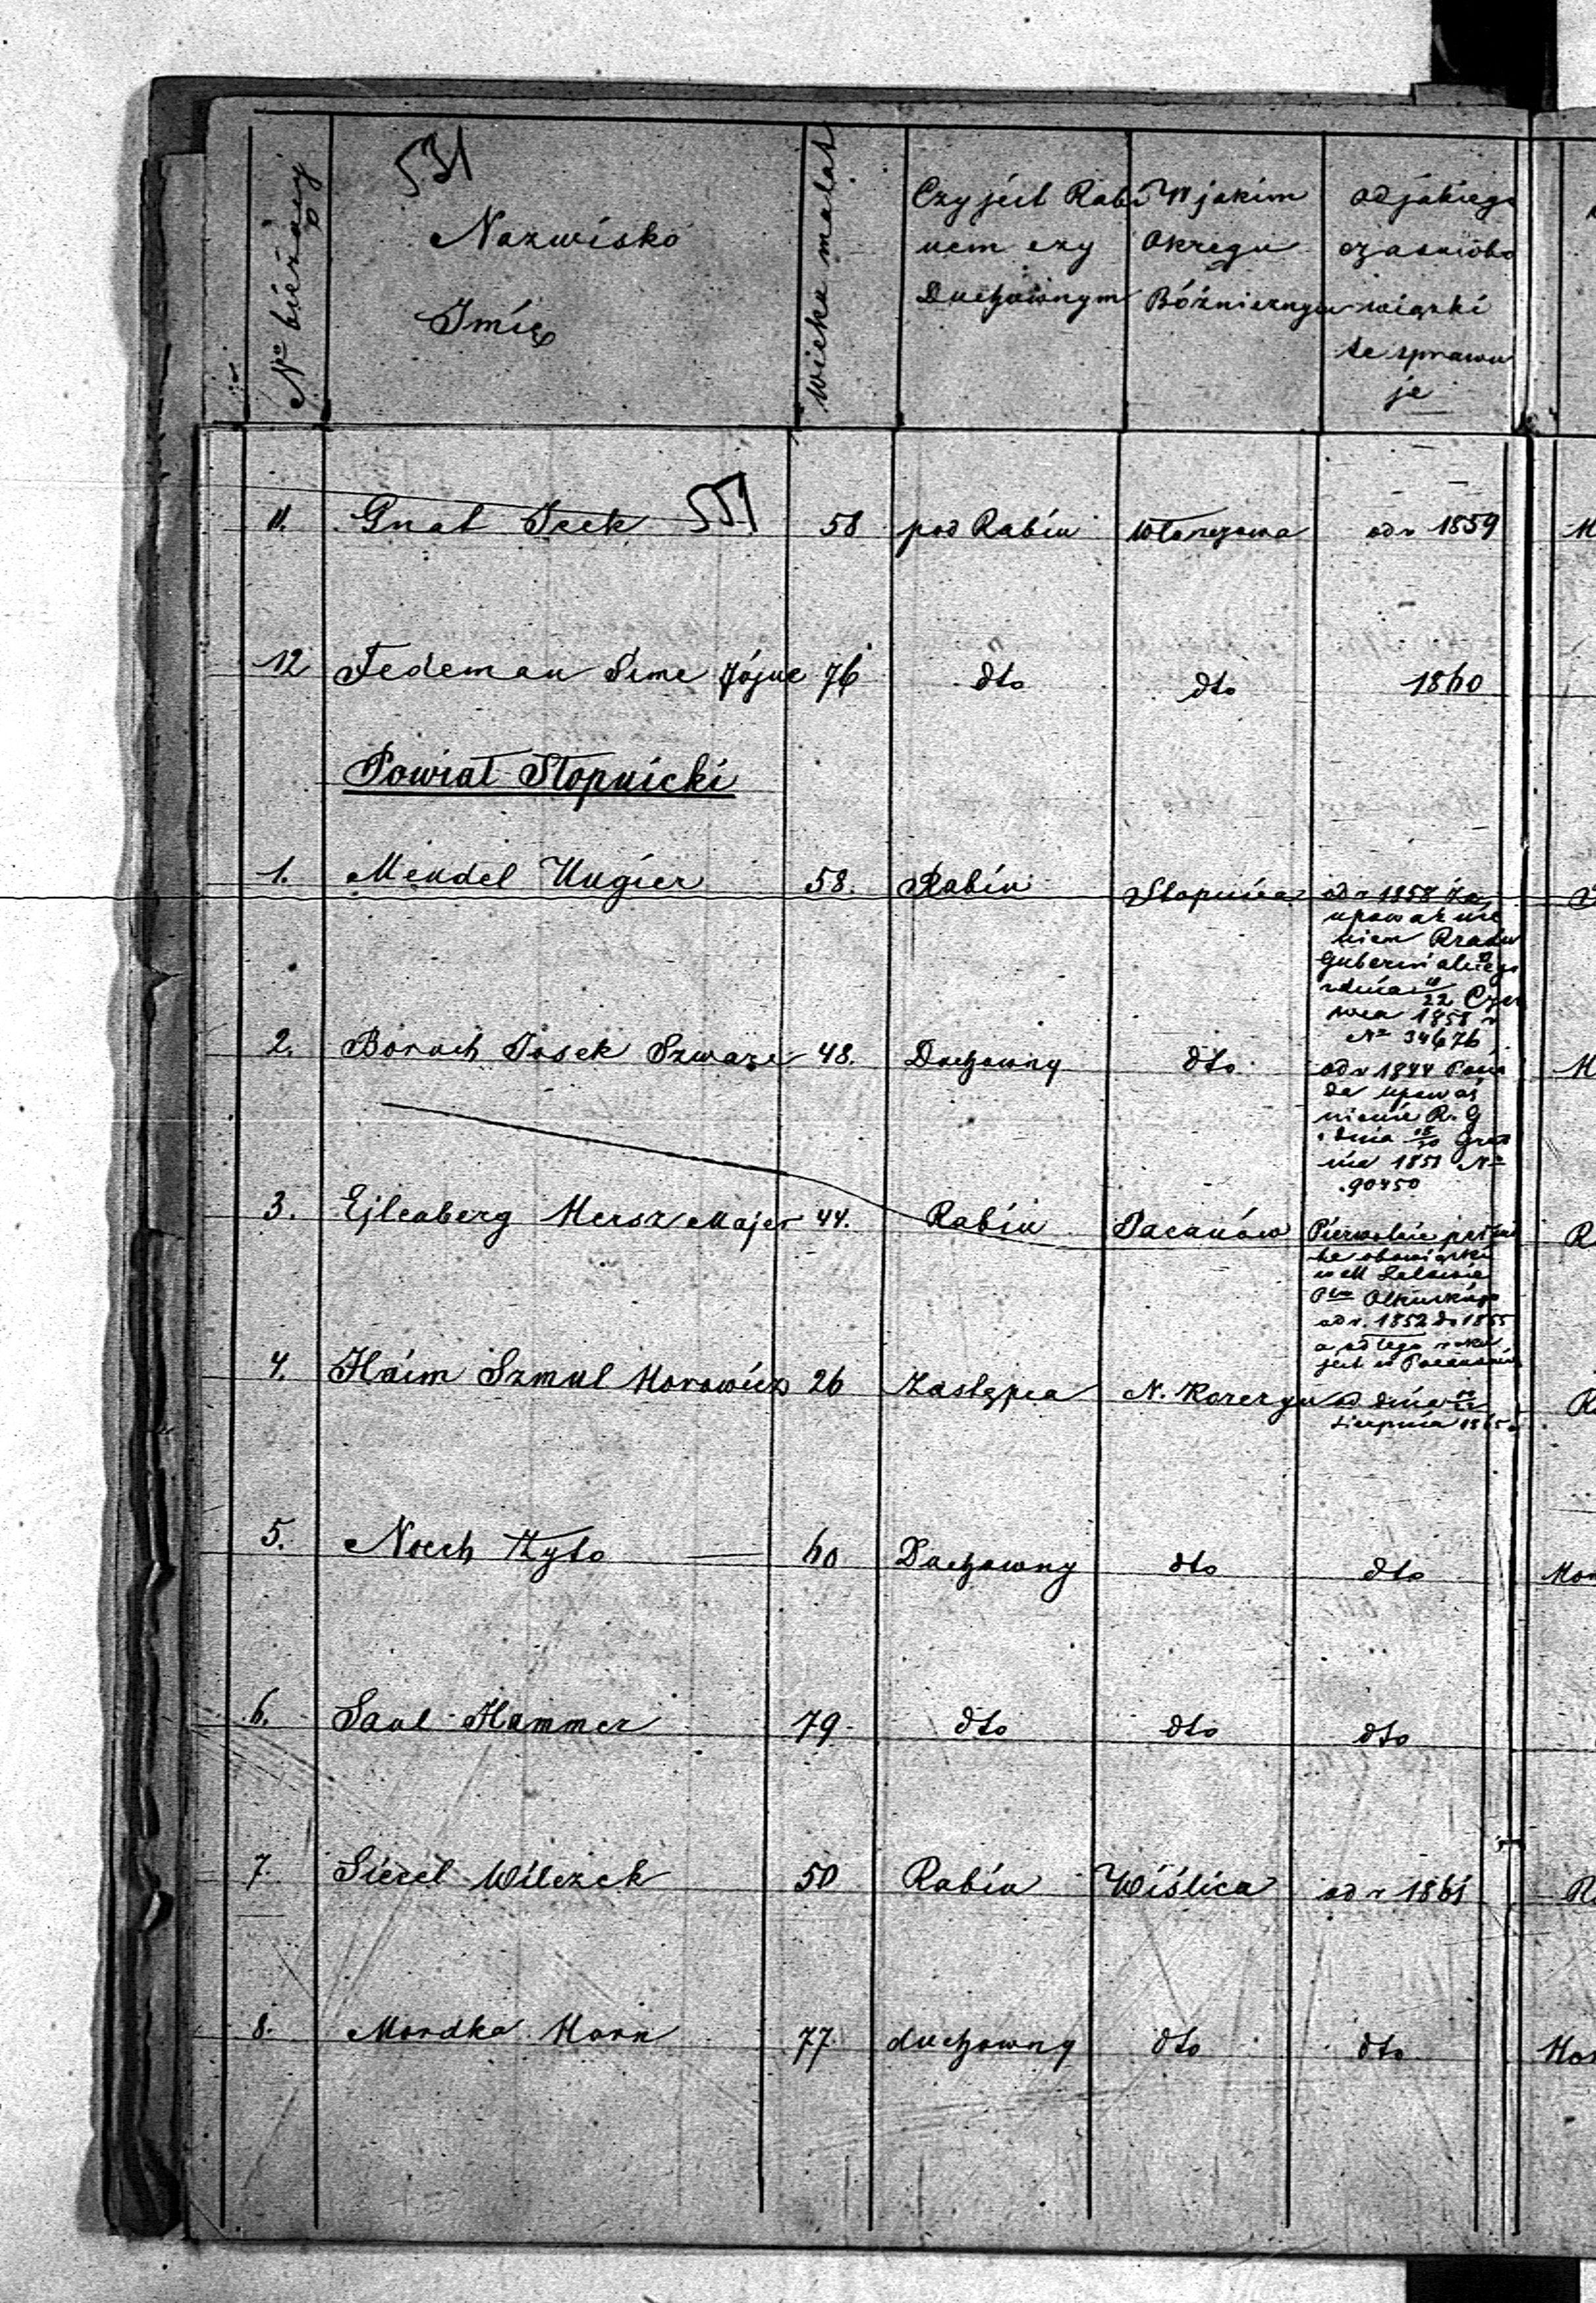 531
Nº bieżący
Nazwisko
Imię
wieku ma lat
Czy jest Rabi
nem czy
Duchownym
W jakim
Okręgu
Bóżnicznym
od jakiego
czasu obo
wiązki
te sprawu
je
11. Gnat Icek 551 58 pod Rabin Włoszczowa od r 1859
12 Fedeman Sime Jójne 76 dto dto 1860
Powiat Stopnicki
1. Mendel Ungier 58. Rabin Stopnica od r 1858 Za
upoważnie
niem Rządu
Gubernialnego
z dnia 22 Czer
wca 1858 r
Nº 34676
2. Boruch Josek Szwarc 48. Duchowny dto od r 1844 Posia
da upoważ
nienie R. G
z dnia Grud
nia 1851 Nº
90450
3. Ejlenberg Hersz Majer 44. Rabin Pacanów Pierwotnie pełnił
te obowiązki
w M Lelowie
Ptu Olkuskiego
od r. 1852 do 1855
a od tego roku
jest w Pacanowie
4. Haim Szmul Horowicz 26 Zastępca N. Korczyn od dnia
Sierpnia 1865
5. Noech Zyto 60 Duchowny dto dto
6. Saul Hammer 79 dto dto dto
7. Siecel Wilczek 50 Rabin Wiślica od r 1861
8. Mordka Horn 77 duchowny dto dto